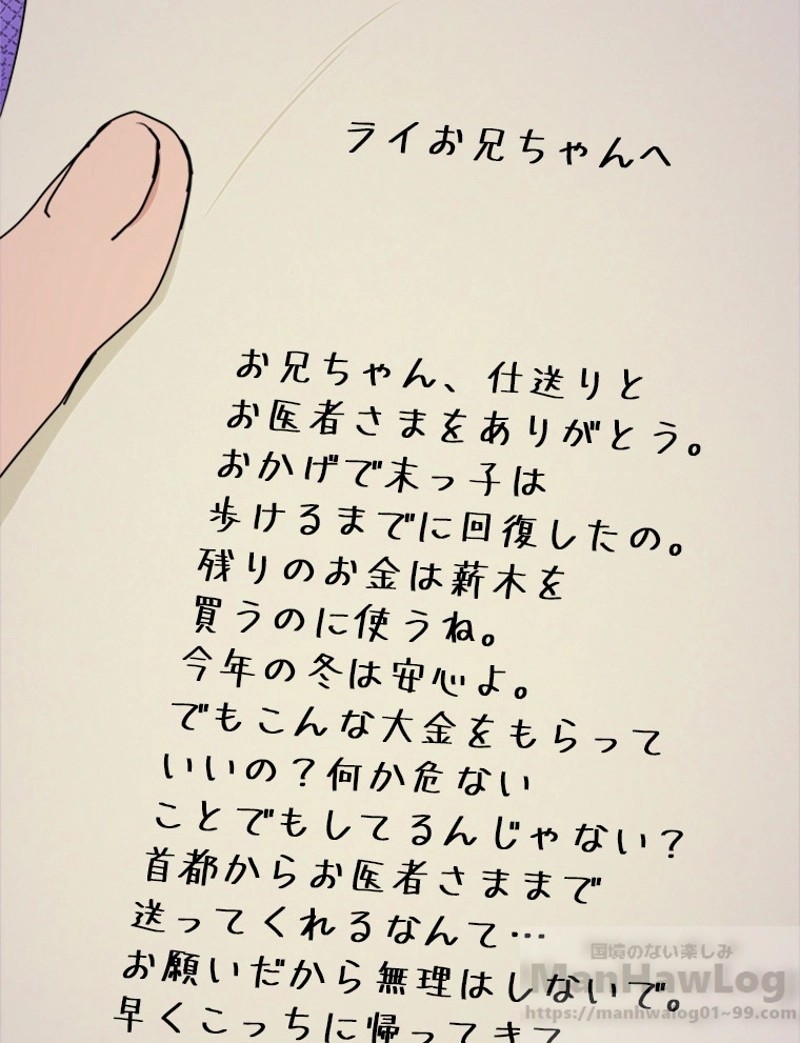 ライお兄ちゃんへ
お兄ちゃん、仕送りと
お医者さまをありがとう。
おかげで末っ子は
歩けるまでに回復したの。
残りのお金は薪木を
買うのに使うね。
今年の冬は安心よ。
でもこんな大金をもらって
いいの？何か危ない
ことでもしてるんじゃない？
首都からお医者さままで
送ってくれるなんて…
お願いだから無理はしないで。
早くこっちに帰ってきて
国境のない楽しみ
ManHawLog
https://manhwalog01~99.com